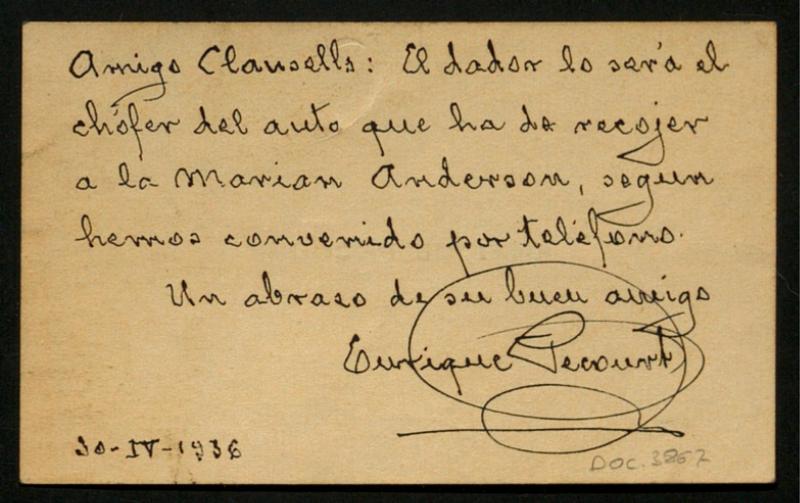 Amigo Clausells: El dador lo será el
chófer del auto que ha de recojer
a la Marian Anderson, segun
hemos convenido por teléfono.
Un abraso de su buen amigo
Enrique Pecourt
30-IV-1936
DOC. 3867